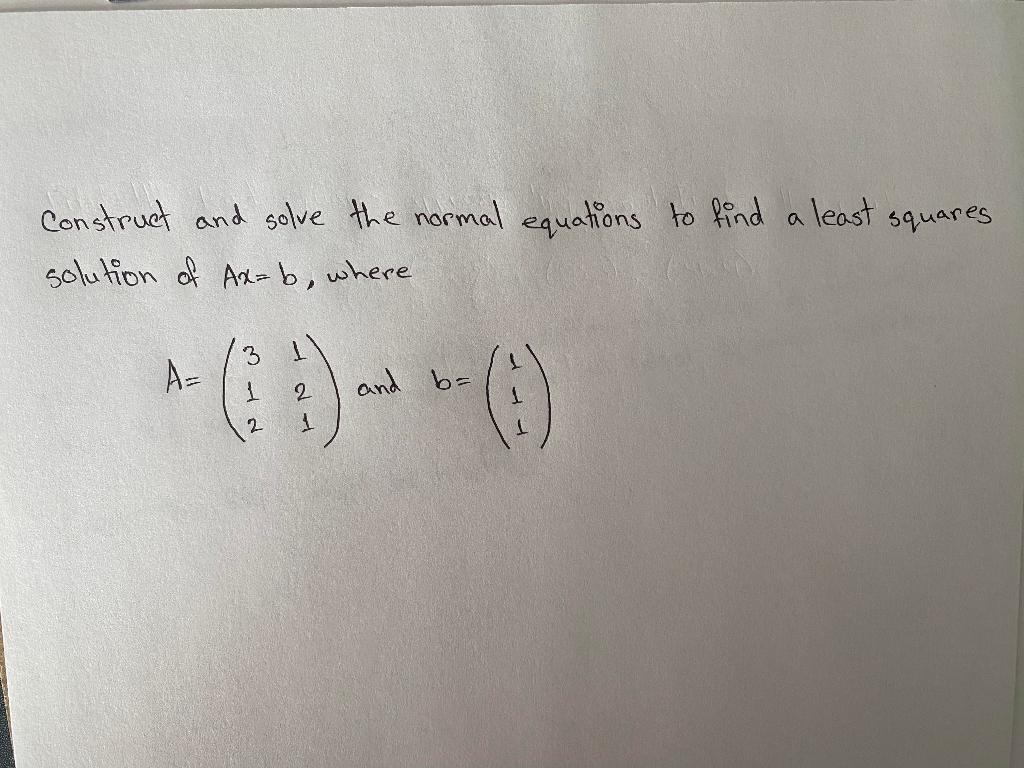 Construct and solve the normal equations to find a least squares
solution of Ax=b, where
A= (3 1
1 2
2 1) and b= (1
1
1)